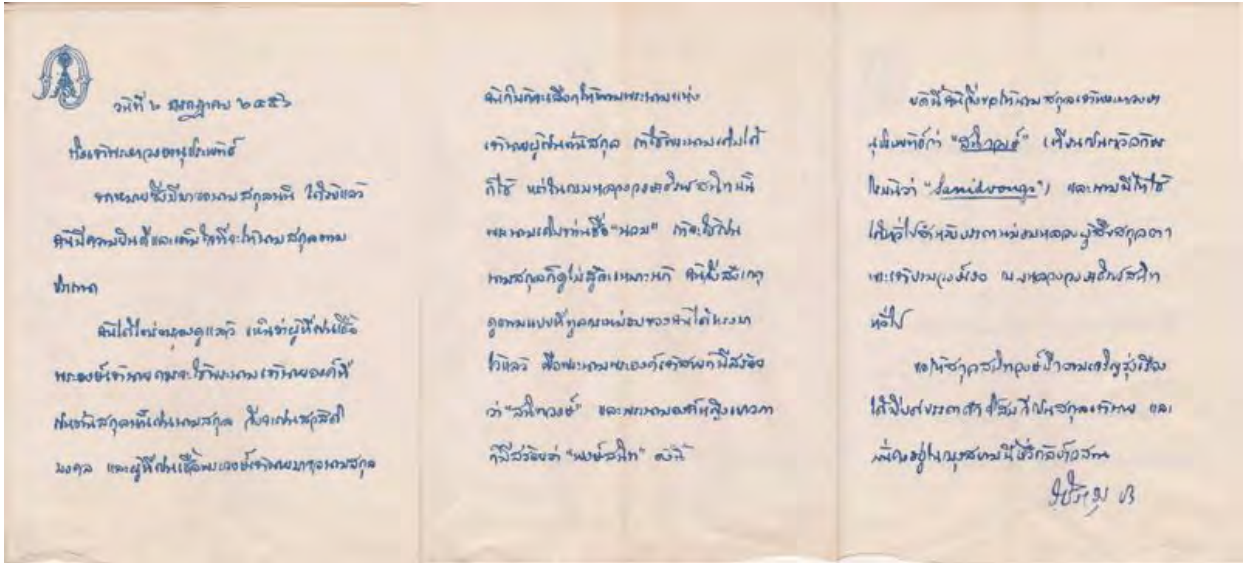 วันที่ ๖ กรกฎาคม ๒๔๕๖
ถึงเจ้าพระยาวงษานุประพัทธ์
จดหมายซึ่งมีมาขอนามสกุลนั้น ได้รับแล้ว
ฉันมีความยินดีและเต็มใจที่จะให้นามสกุลตาม
ปรารถนา
ฉันได้ใคร่ครวญดูแล้ว เห็นว่าผู้ที่เป็นเชื้อ
พระองค์เจ้านายควรจะใช้พระนามเจ้านายองค์ที่
เป็นต้นสกุลนั้นเป็นนามสกุล จึงจะเป็นสวัสดิ
มงคล และผู้ที่เป็นเชื้อพระวงษ์เจ้านายมาขอนามสกุล
ฉันก็นึกจะเลือกให้ตามพระนามแห่ง
เจ้านายผู้เป็นต้นสกุล ถ้าใช้พระนามเดิมได้
ก็ใช้ แต่ในกรมหลวงวงษาธิราชสนิทนั้น
พระนามเดิมท่านชื่อ "นวม" ถ้าจะใช้เป็น
นามสกุลก็ดูไม่สู้จะเหมาะนัก ฉันจึงสังเกต
ดูตามแบบที่ทูลกระหม่อมของฉันได้ทรงมา
ไว้แล้ว คือพระนามพระองค์เจ้าสายก็มีสร้อย
ว่า "สนิทวงษ์" และพระนามองค์หญิงเยาวภา
ก็มีสร้อยว่า "พงษ์สนิท" ดังนี้
บัดนี้ฉันจึงขอให้นามสกุลเจ้าพระยาวงษา
นุประพัทธ์ว่า "สนิทวงษ์" (เขียนเป็นตัวอักษร
โรมันว่า "Sanidvongs") และนามนี้ให้ใช้
ได้ทั่วไปสำหรับบรรดาหม่อมหลวงผู้สืบสกุลตรง
พระเจ้าบรมวงษ์เธอ กรมหลวงวงษาธิราชสนิท
ทั่วไป
ขอให้สกุลสนิทวงษ์มีความเจริญรุ่งเรือง
ได้มียศบรรดาศักดิ์สมที่เป็นสกุลเจ้านาย และ
มั่นคงอยู่ในกรุงสยามนี้ชั่วกัลปาวสาน
วชิราวุธ ปร